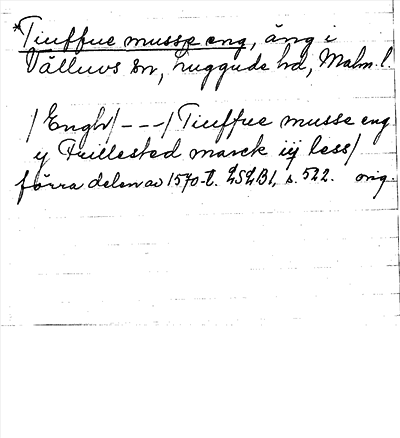 *Tiuffue musse eng, äng i
Välluvs sn, Luggude hd, Malm. l.
/Engh/ – – – / Tiuffue musse eng
y Frullested marck iij less/
förra delen av 1570-t. LSLB1, s. 522. orig.